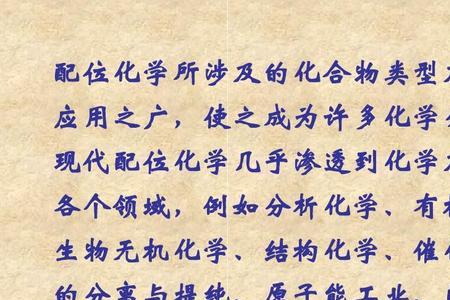 配位化学所涉及的化合物类型
应用之广，使之成为许多化学
现代配位化学几乎渗透到化学
各个领域，例如分析化学、有
生物无机化学、结构化学、催
的分离与提纯、原子能工业、